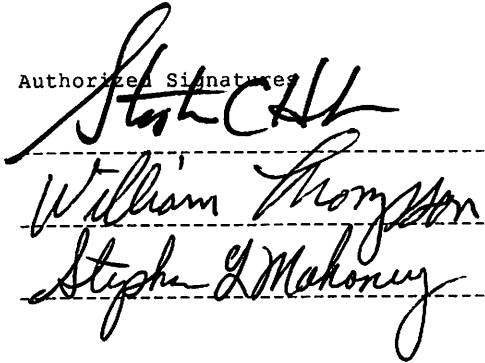 Authorized Signatures
Stephen C H
William Thompson
Stephen L Mahoney